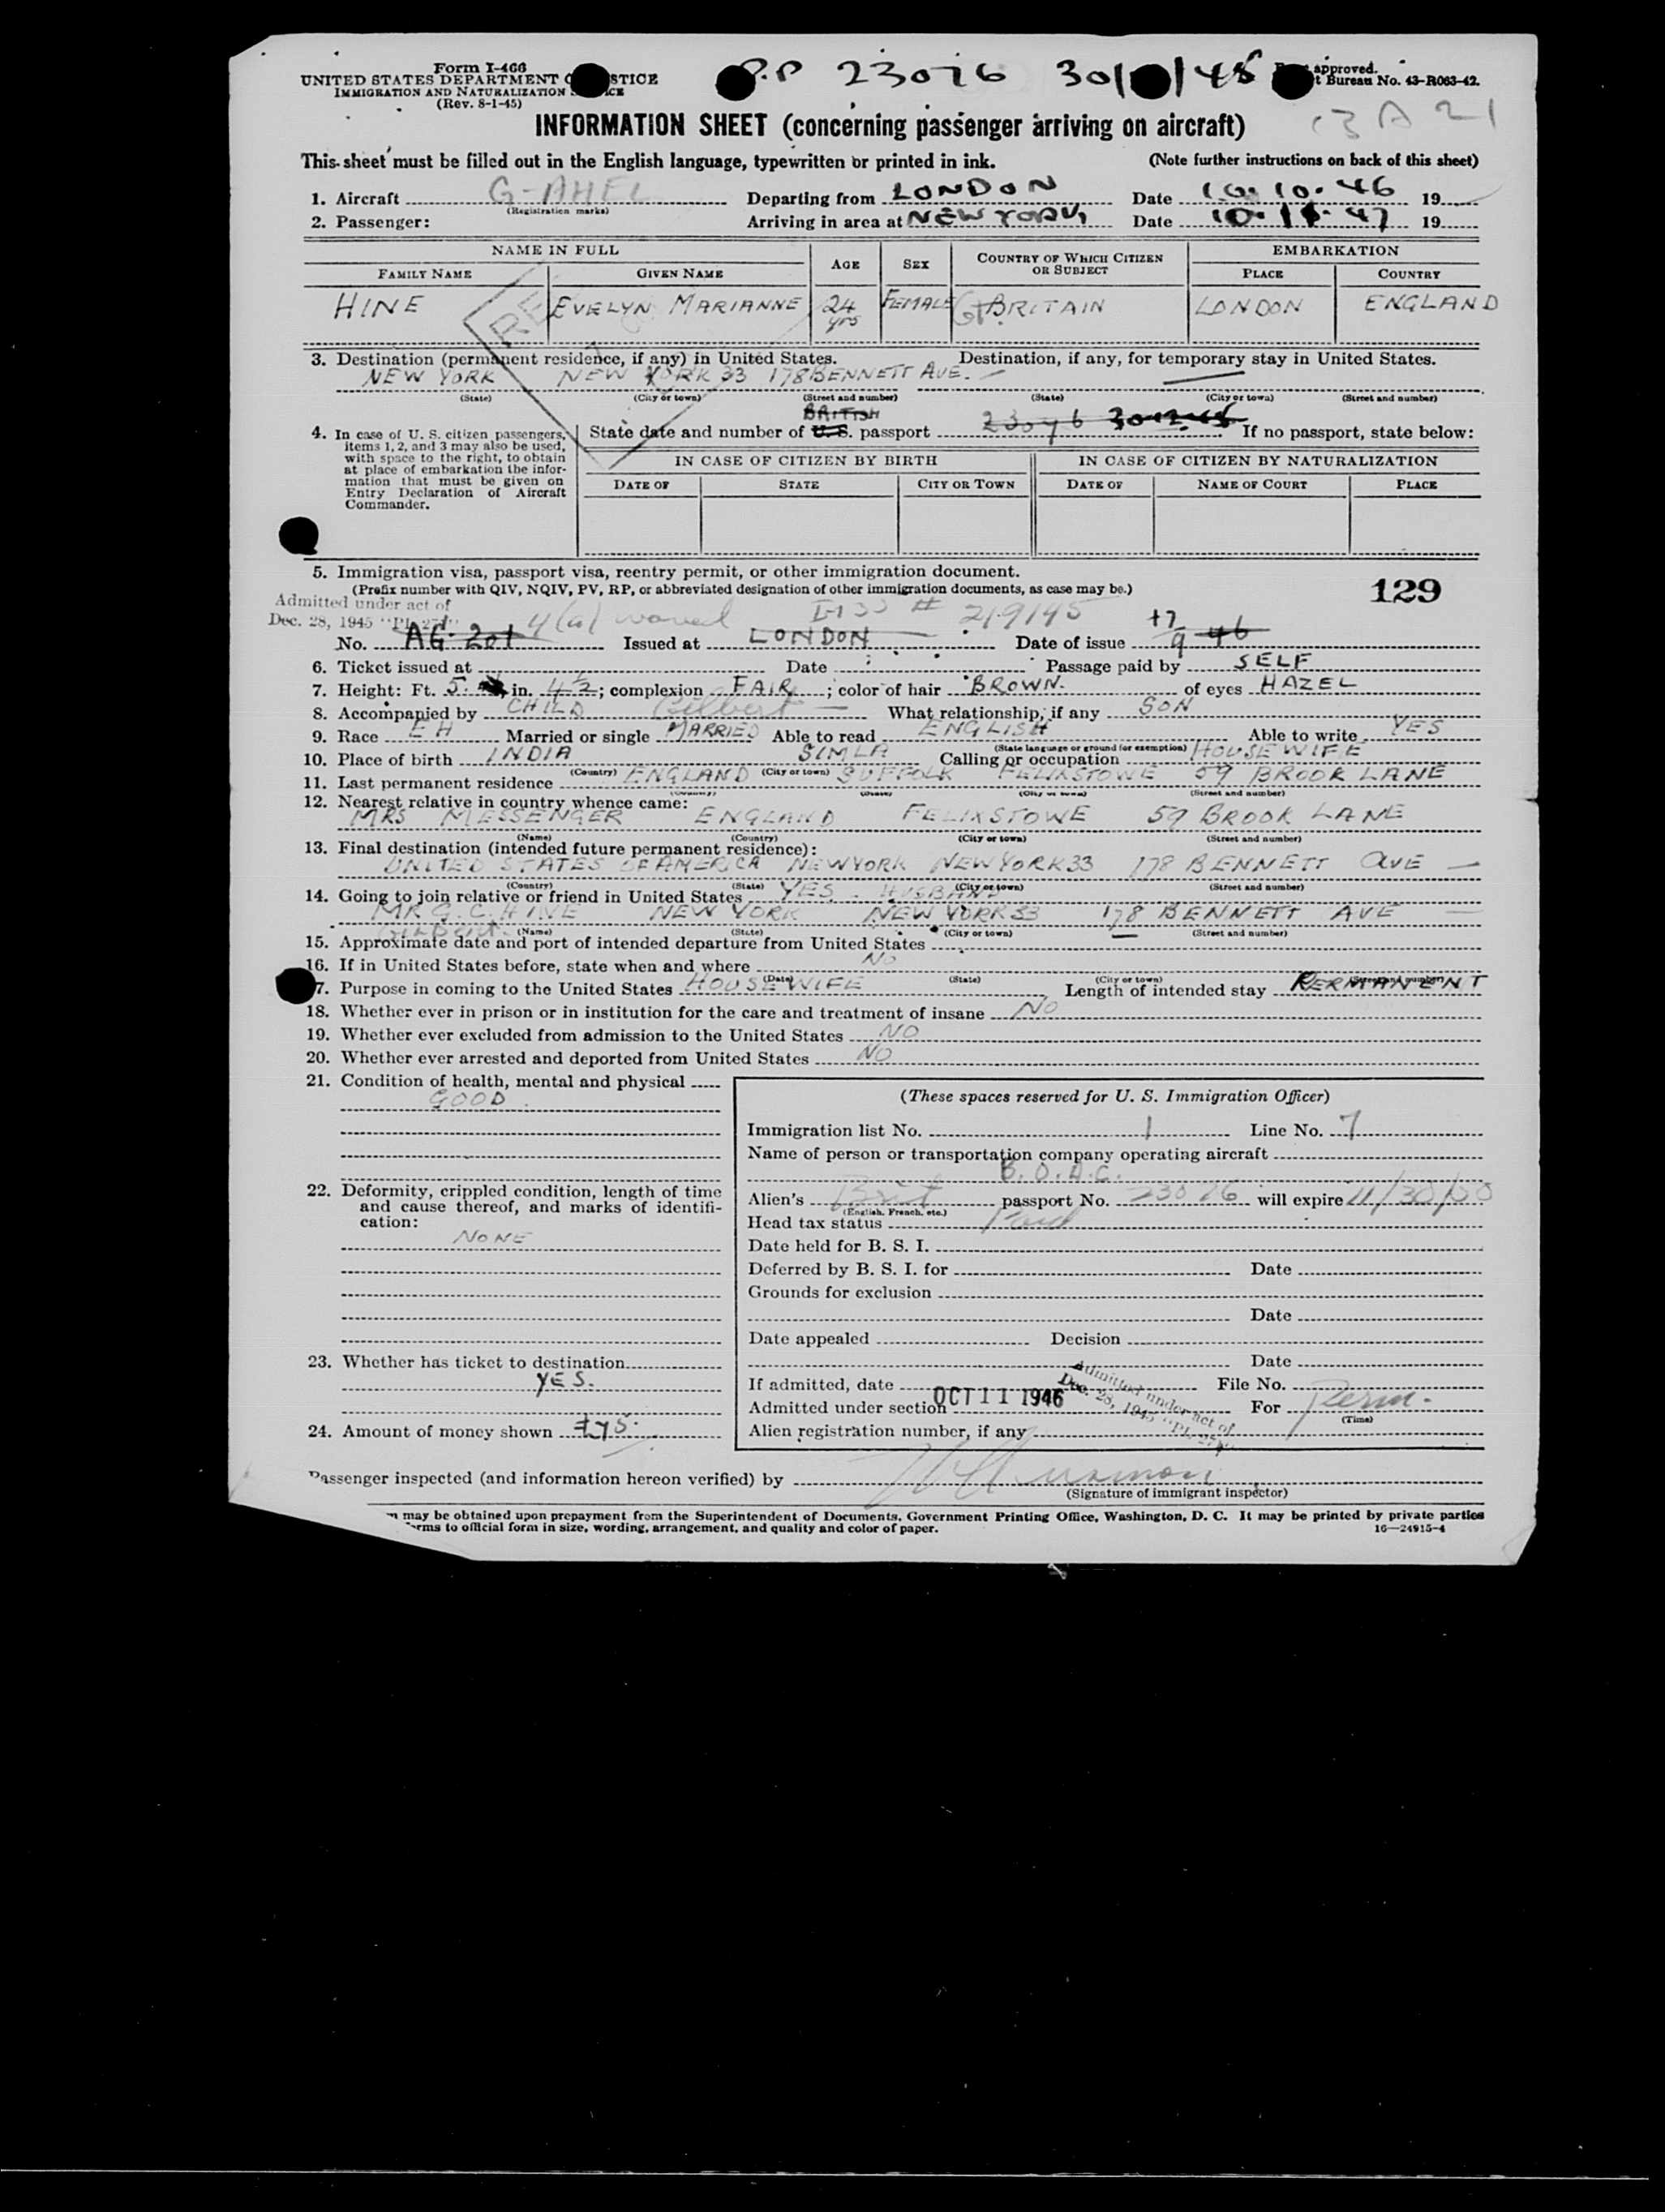 Form I-466
UNITED STATES DEPARTMENT
IMMIGRATION AND NATURALIZATION
(Rev. 8-1-45)
P.P 23076 30/ /45
approved.
Bureau No. 43-R063-42.
3 A 21
INFORMATION SHEET (concerning passenger arriving on aircraft)
This sheet must be filled out in the English language, typewritten or printed in ink. (Note further instructions on back of this sheet)
1. Aircraft G-AHEL Departing from LONDON Date 10.10.46 19
(Registration marks)
2. Passenger: Arriving in area at NEW YORK Date 19
NAME IN FULL AGE SEX COUNTRY OF WHICH CITIZEN OR SUBJECT EMBARKATION
FAMILY NAME GIVEN NAME PLACE COUNTRY
HINE EVELYN MARIANNE 24 yrs FEMALE GT BRITAIN LONDON ENGLAND
3. Destination (permanent residence, if any) in United States. Destination, if any, for temporary stay in United States.
NEW YORK NEW YORK 33 178 BENNETT AVE. —
(State) (City or town) (Street and number) (State) (City or town) (Street and number)
BRITISH
4. In case of U. S. citizen passengers, items 1, 2, and 3 may also be used, with space to the right, to obtain at place of embarkation the information that must be given on Entry Declaration of Aircraft Commander.
State date and number of U. S. passport 23076 30-12-45. If no passport, state below:
IN CASE OF CITIZEN BY BIRTH IN CASE OF CITIZEN BY NATURALIZATION
DATE OF STATE CITY OR TOWN DATE OF NAME OF COURT PLACE
5. Immigration visa, passport visa, reentry permit, or other immigration document.
(Prefix number with QIV, NQIV, PV, RP, or abbreviated designation of other immigration documents, as case may be.)
129
Admitted under act of
Dec. 28, 1945 "PL 271"
4(a) waved I-133 # 219145
No. AG-201 Issued at LONDON Date of issue 17 9 46
6. Ticket issued at Date Passage paid by SELF
7. Height: Ft. 5. in. 4½; complexion FAIR; color of hair BROWN. of eyes HAZEL
8. Accompanied by CHILD Gilbert — What relationship, if any SON
9. Race EH Married or single MARRIED Able to read ENGLISH Able to write YES
(State language or ground for exemption)
10. Place of birth INDIA SIMLA Calling or occupation HOUSEWIFE
(Country) (City or town)
11. Last permanent residence ENGLAND SUFFOLK FELIXSTOWE 59 BROOK LANE
(Country) (State) (City or town) (Street and number)
12. Nearest relative in country whence came:
MRS MESSENGER ENGLAND FELIXSTOWE 59 BROOK LANE
(Name) (Country) (City or town) (Street and number)
13. Final destination (intended future permanent residence):
UNITED STATES OF AMERICA NEW YORK NEW YORK 33 178 BENNETT AVE —
(Country) (State) (City or town) (Street and number)
14. Going to join relative or friend in United States YES - HUSBAND
MR G. C. HINE NEW YORK NEW YORK 33 178 BENNETT AVE —
Gilbert (Name) (State) (City or town) (Street and number)
15. Approximate date and port of intended departure from United States
16. If in United States before, state when and where NO
(Date) (State) (City or town) (Street and number)
17. Purpose in coming to the United States HOUSEWIFE Length of intended stay PERMANENT
18. Whether ever in prison or in institution for the care and treatment of insane NO
19. Whether ever excluded from admission to the United States NO
20. Whether ever arrested and deported from United States NO
21. Condition of health, mental and physical
GOOD.
22. Deformity, crippled condition, length of time and cause thereof, and marks of identification:
NONE
23. Whether has ticket to destination
YES.
24. Amount of money shown £75.
(These spaces reserved for U. S. Immigration Officer)
Immigration list No. 1 Line No. 7
Name of person or transportation company operating aircraft
B.O.A.C.
Alien's Brit passport No. 23076 will expire 11/30/50
(English, French, etc.)
Head tax status Paid
Date held for B. S. I.
Deferred by B. S. I. for Date
Grounds for exclusion
Date
Date appealed Decision
Date
If admitted, date OCT 11 1946 File No.
Admitted under section For Perm.
(Time)
Admitted under act of
Dec. 28, 1945 "PL 271"
Alien registration number, if any
Passenger inspected (and information hereon verified) by
(Signature of immigrant inspector)
may be obtained upon prepayment from the Superintendent of Documents, Government Printing Office, Washington, D. C. It may be printed by private parties
to official form in size, wording, arrangement, and quality and color of paper. 16—24915-4